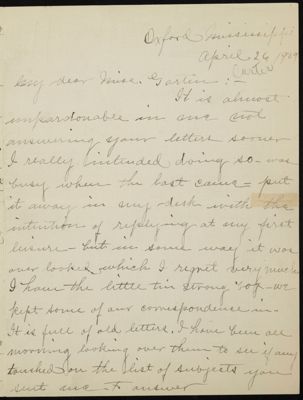 Oxford Mississippi
April 26 1929
My dear Miss. Garten :-
Carter
It is almost
unpardonable in me not
answering your letters sooner
I really intended doing so - was
busy when the last came - put
it away in my desk with the
intention of replying at my first
leisure - but in some way it was
over looked which I regret very much
I have the little tin strong box - we
kept some of our correspondence in -
It is full of old letters. I have been all
morning looking over them to see if any
touched on the list of subjects you
sent me to answer